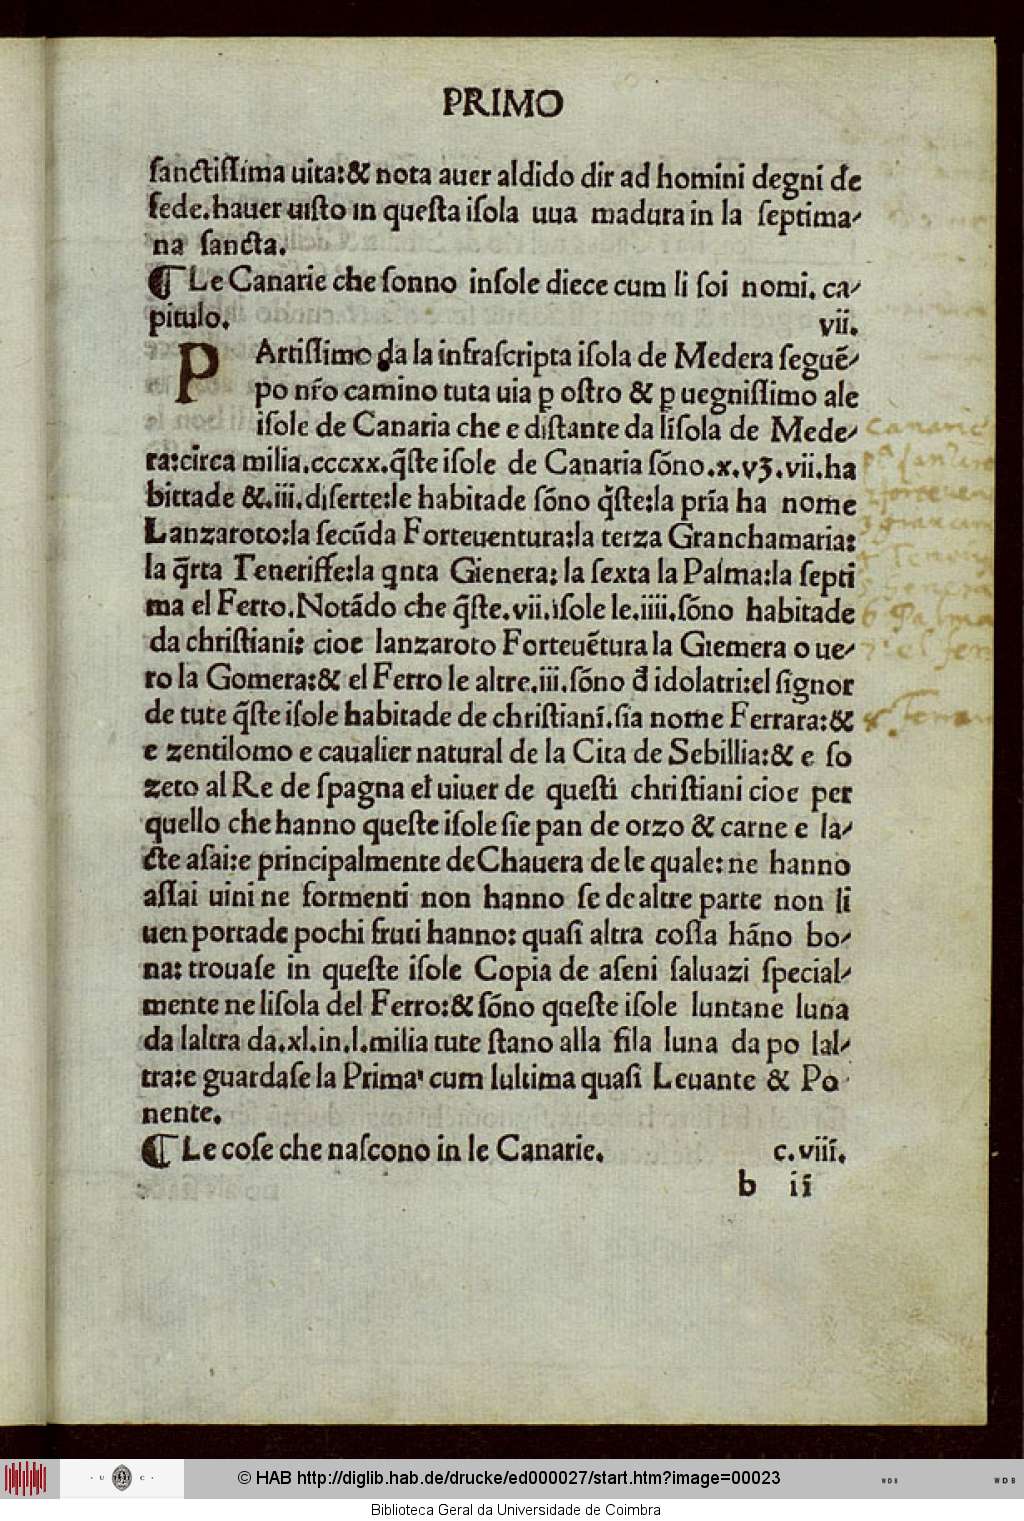 PRIMO
sanctissima uita:& nota auer aldido dir ad homini degni de
fede.hauer uisto in questa isola uua madura in la septima-
na sancta.
¶ Le Canarie che sonno insole diece cum li soi nomi. ca-
pitulo. vii.
PArtissimo da la infrascripta isola de Medera seguē-
po nr̃o camino tuta uia ꝑ ostro & ꝑ uegnissimo ale
isole de Canaria che e distante da lisola de Mede-
ra:circa milia.cccxx.q̃ste isole de Canaria sōno.x.vʒ.vii.ha
bittade &.iii.diserte:le habitade sōno q̃ste:la prīa ha nome
Lanzaroto:la secūda Forteuentura:la terza Granchamaria:
la q̃rta Teneriffe:la qnta Gienera: la sexta la Palma:la septi
ma el Ferro.Notādo che q̃ste.vii.isole le.iiii.sōno habitade
da christiani: cioe lanzaroto Forteuētura la Giemera o ue-
ro la Gomera:& el Ferro le altre.iii.sōno đ idolatri:el signor
de tute q̃ste isole habitade de christiani.sia nome Ferrara:&
e zentilomo e caualier natural de la Cita de Sebillia:& e so
zeto al Re de spagna el uiuer de questi christiani cioe per
quello che hanno queste isole sie pan de orzo & carne e la-
cte asai:e principalmente de Chauera de le quale: ne hanno
assai uini ne formenti non hanno se de altre parte non li
uen portade pochi fruti hanno: quasi altra cossa hāno bo-
na: trouase in queste isole Copia de aseni saluazi special-
mente ne lisola del Ferro:& sōno queste isole luntane luna
da laltra da.xl.in.l.milia tute stano alla fila luna da po lal-
tra:e guardase la Prima cum lultima quasi Leuante & Po
nente.
¶ Le cose che nascono in le Canarie. c.viii.
b ii
Canarie
Palma
© HAB http://diglib.hab.de/drucke/ed000027/start.htm?image=00023
WDB
WDB
Biblioteca Geral da Universidade de Coimbra